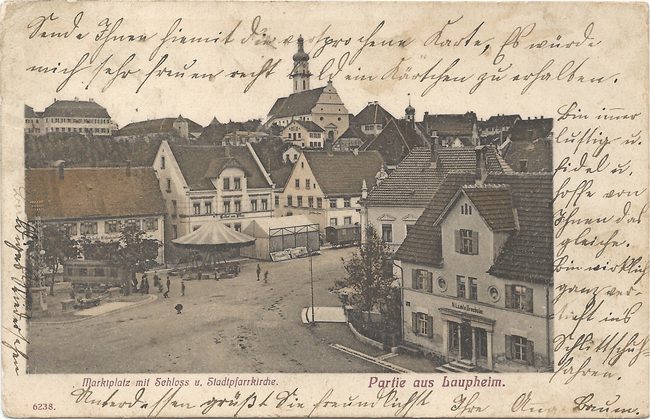 Sende Ihnen hiemit die versprochene Karte, Es würde
mich sehr freuen recht bald ein Kärtchen zu erhalten.
Bin immer
lustig u.
fidel u.
hoffe von
Ihnen das
gleiche.
Bin wirklich
ganz ver-
Schlittschuh-
fahren.
Marktplatz mit Schloss u. Stadtpfarrkirche.
Partie aus Laupheim.
6238.
Unterdessen grüßt Sie freundlichst Ihre